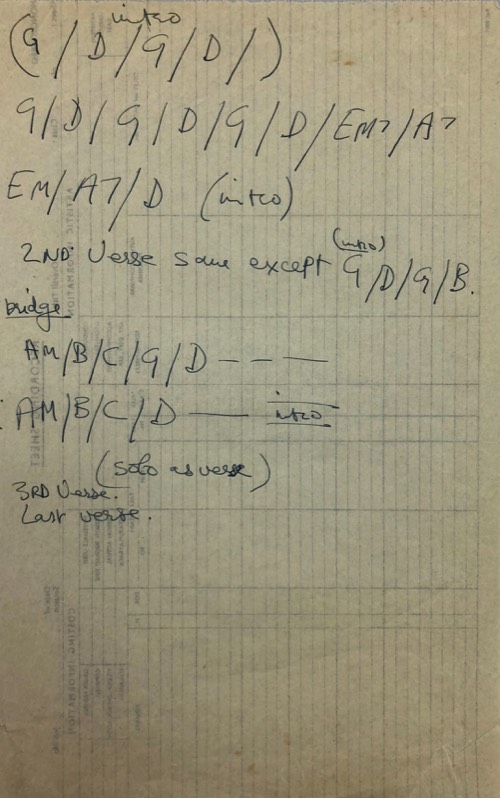 intro
(G / D / G / D /)
G / D / G / D / G / D / EM7 / A7
EM / A7 / D (intro)
2ND. Verse same except (intro) G / D / G / B.
bridge
AM / B / C / G / D — — —
AM / B / C / D — intro
(Solo as verse)
3RD Verse.
Last verse.
COSTING INFORMATION